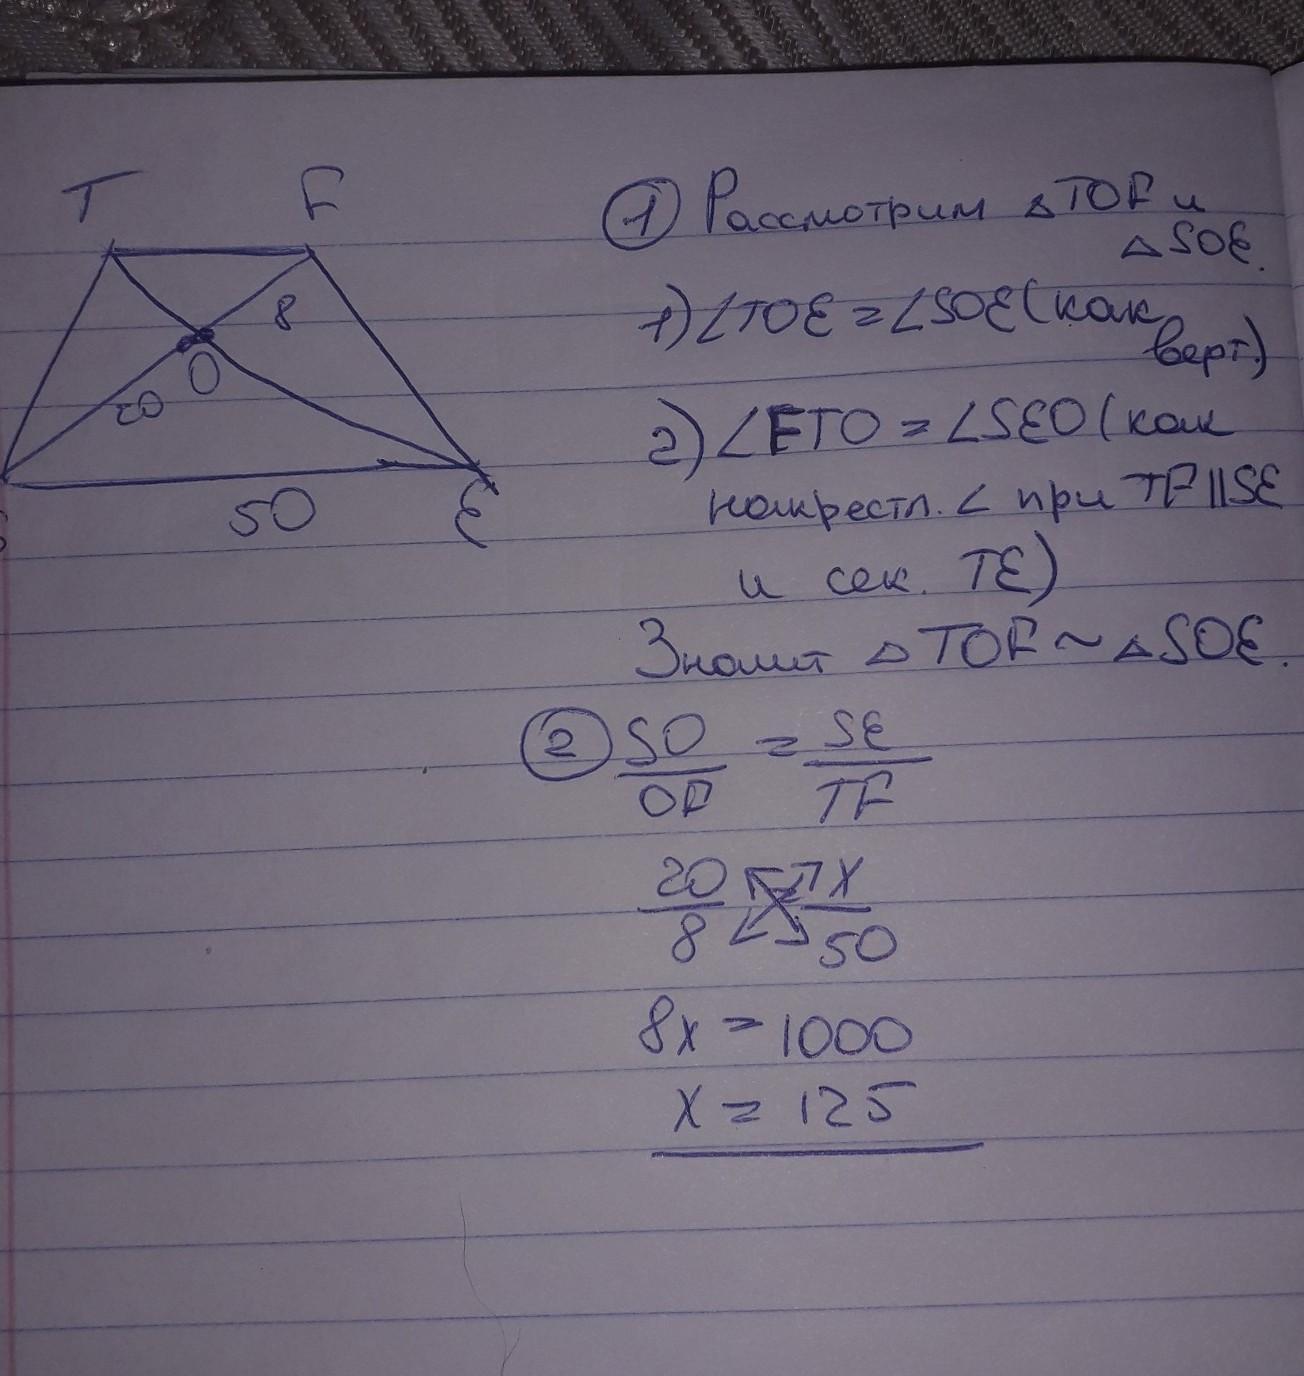 T F
8
O
20
50
S
E
① Рассмотрим △TOF и
△SOE.
1) ∠TOE = ∠SOE (как
верт.)
2) ∠FTO = ∠SEO (как
накрестл. ∠ при TF || SE
и сек. TE)
Значит △TOF ~ △SOE.
② SO/OF = SE/TF
20/8 = x/50
8x = 1000
x = 125